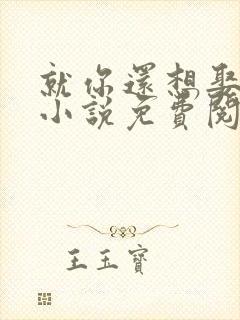 就你還想娶
小説免費閱
王玉寶